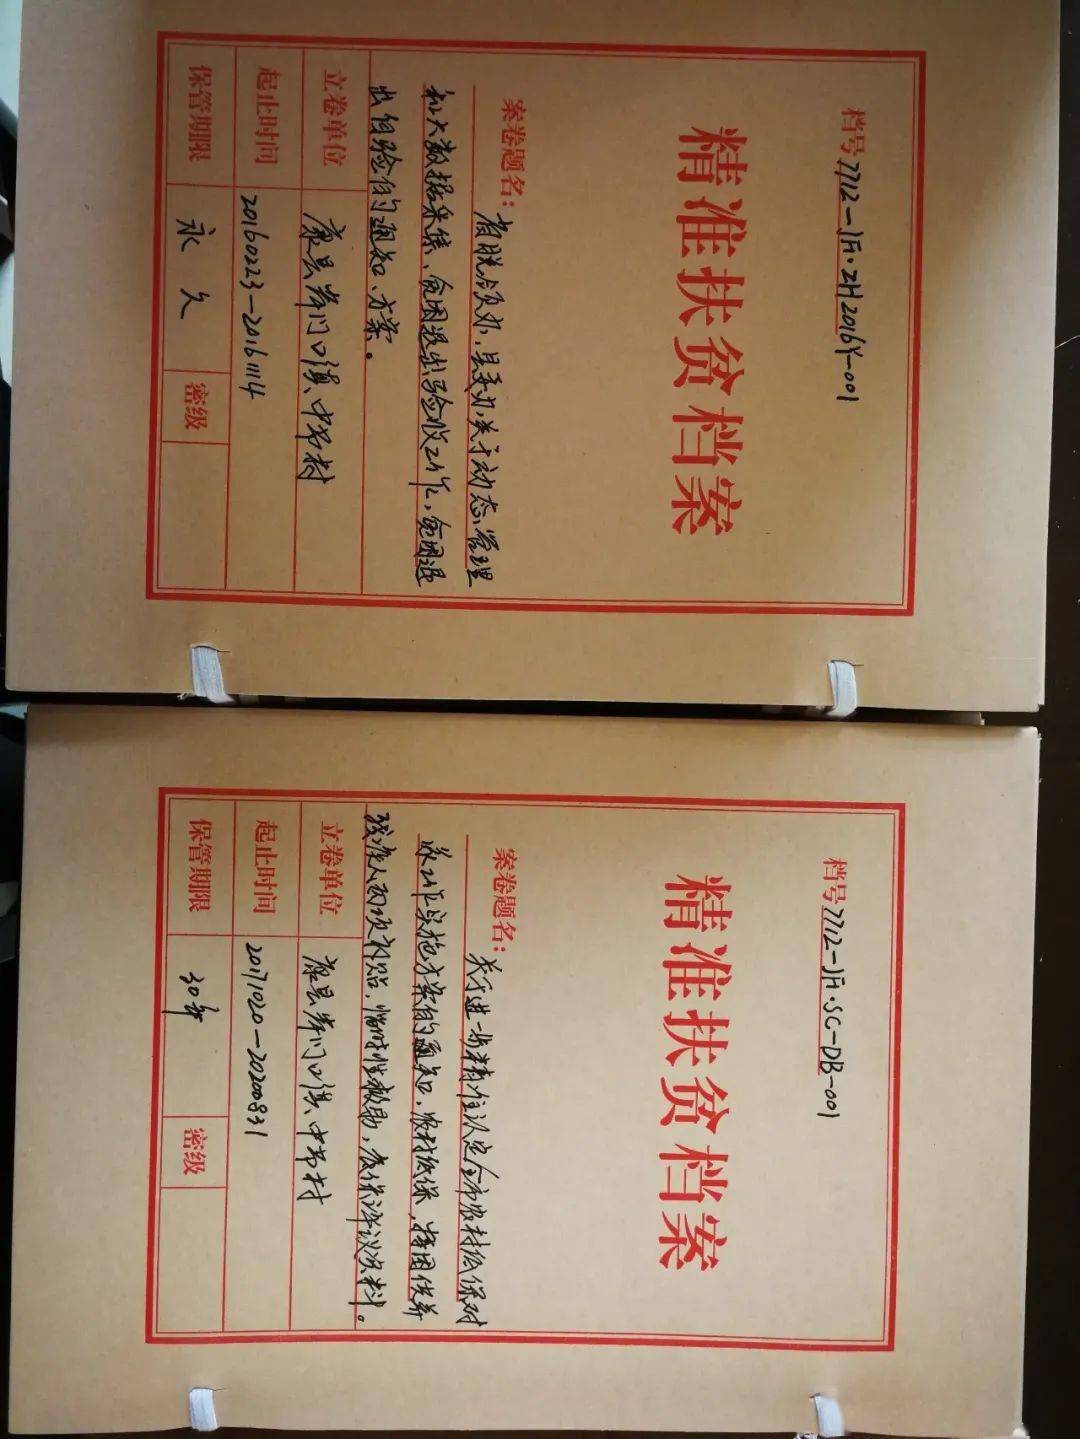 档号7712-JF·ZH2016Y-001
精准扶贫档案
案卷题名：省脱领办、县委办关于动态管理
和大数据采集、贫困退出验收工作，贫困退
出组验俏的通知、方案。
立卷单位 康县岸门口镇中节村
起止时间 20160223—20161114
保管期限 永久 密级
档号7712-JF·SC-DB-001
精准扶贫档案
案卷题名：关于进一步精准认定全市农村低保对
象工作实施方案的通知，农村低保，特困供养
残疾人两项补贴，临时性救助，低保评议资料。
立卷单位 康县岸门口镇中节村
起止时间 20171020—20200831
保管期限 30年 密级